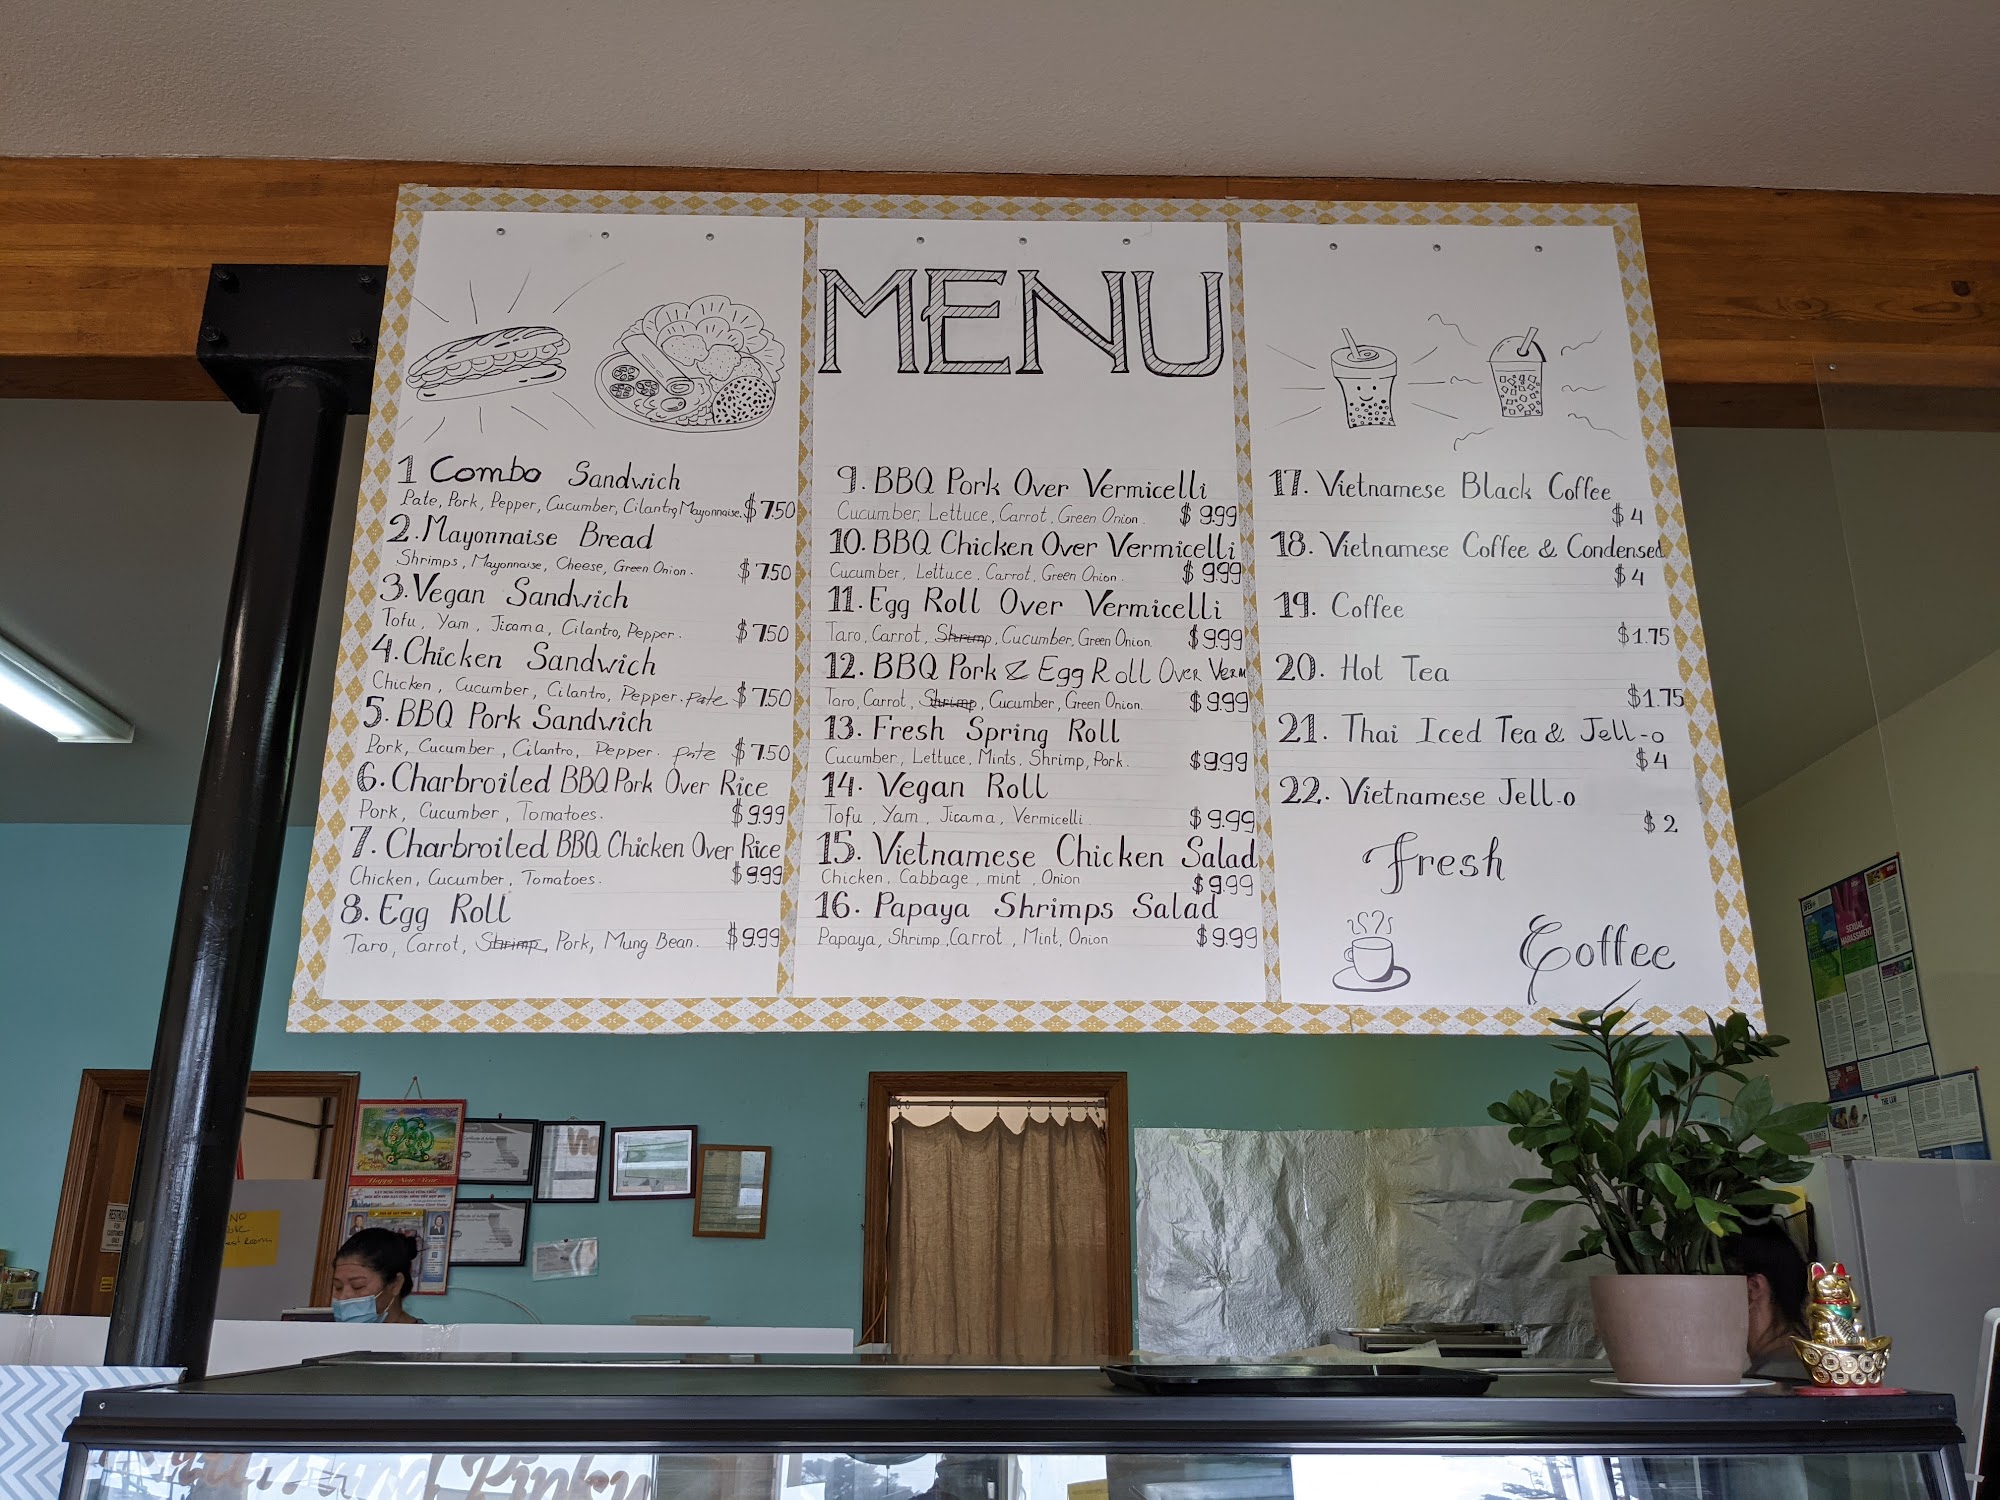 MENU
1 Combo Sandwich
Pate, Pork, Pepper, Cucumber, Cilantro, Mayonnaise. $7.50
2. Mayonnaise Bread
Shrimps, Mayonnaise, Cheese, Green Onion. $7.50
3. Vegan Sandwich
Tofu, Yam, Jicama, Cilantro, Pepper. $7.50
4. Chicken Sandwich
Chicken, Cucumber, Cilantro, Pepper. pate $7.50
5. BBQ Pork Sandwich
Pork, Cucumber, Cilantro, Pepper. pate $7.50
6. Charbroiled BBQ Pork Over Rice
Pork, Cucumber, Tomatoes. $9.99
7. Charbroiled BBQ Chicken Over Rice
Chicken, Cucumber, Tomatoes. $9.99
8. Egg Roll
Taro, Carrot, Shrimp, Pork, Mung Bean. $9.99
9. BBQ Pork Over Vermicelli
Cucumber, Lettuce, Carrot, Green Onion. $9.99
10. BBQ Chicken Over Vermicelli
Cucumber, Lettuce, Carrot, Green Onion. $9.99
11. Egg Roll Over Vermicelli
Taro, Carrot, Shrimp, Cucumber, Green Onion. $9.99
12. BBQ Pork & Egg Roll Over Verm
Taro, Carrot, Shrimp, Cucumber, Green Onion. $9.99
13. Fresh Spring Roll
Cucumber, Lettuce, Mints, Shrimp, Pork. $9.99
14. Vegan Roll
Tofu, Yam, Jicama, Vermicelli. $9.99
15. Vietnamese Chicken Salad
Chicken, Cabbage, mint, Onion $9.99
16. Papaya Shrimps Salad
Papaya, Shrimp, Carrot, Mint, Onion $9.99
17. Vietnamese Black Coffee
$4
18. Vietnamese Coffee & Condensed
$4
19. Coffee
$1.75
20. Hot Tea
$1.75
21. Thai Iced Tea & Jell-o
$4
22. Vietnamese Jell-o
$2
Fresh
Coffee
SEXUAL
HARASSMENT
THE LAW
Happy New Year
NO
RESTROOM
FOR
CUSTOMER
ONLY